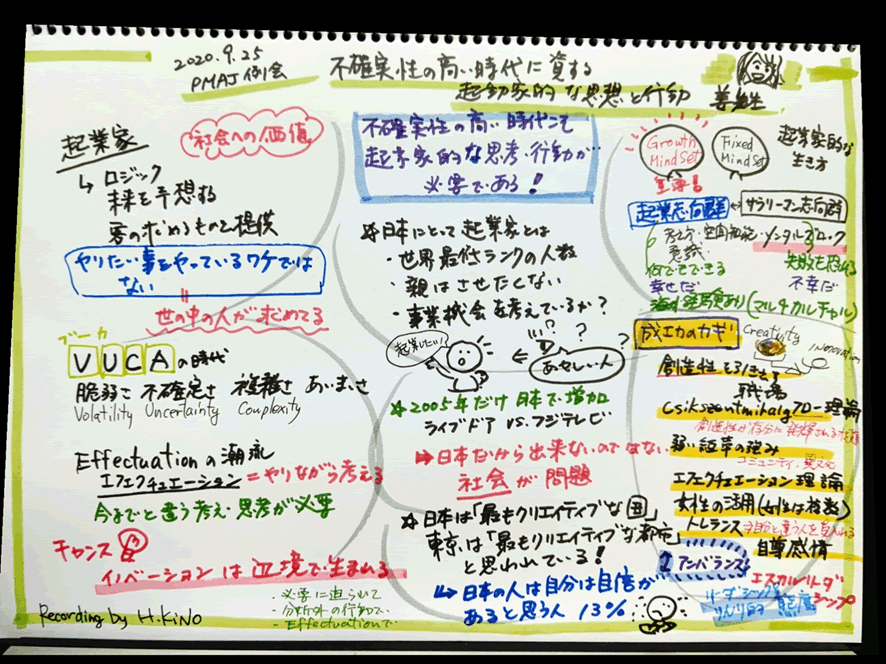 2020.9.25
PMAJ 例会
不確実性の高い時代に資する
起動家的な思想と行動
起業家
"社会への価値"
ロジック
未来を予想する
客の求めるものを提供
ヤリたい事をやっているワケでは
ない
世の中の人が求めてる
ブーカ
VUCAの時代
脆弱さ 不確定さ 複雑さ あいまいさ
Volatility Uncertainty Complexity
Effectuationの潮流
エフェクチュエーション = やりながら考える
今までと違う考え・思考が必要
チャンス
イノベーションは辺境で生まれる
・必要に迫られて
・分野外の行動で
・Effectuationで
Recording by H.KiNO
不確実性の高い時代こそ
起業家的な思考・行動が
必要である!
☆日本にとって起業家とは
・世界最低ランクの人数
・親はさせたくない
・事業機会を考えているか?
起業したい!
!!? ? ?
あやしい人
☆2005年だけ日本で増加
ライブドア VS. フジテレビ
⇒日本だから出来ないのではない
社会が問題
☆日本は「最もクリエイティブな国」
東京は「最もクリエイティブな都市」
と思われている!
↳日本の人は自分は自信が
あると思う人 13%
Growth
MindSet
Fixed
MindSet
起業家的な
生き方
重要
起業志向群 ↔ サラリーマン志向群
メンタルブロック
意識
失敗を恐れる
何でもできる
幸せだ 不幸だ
海外経験あり(マルチカルチャル)
成功のカギ
Creativity
Innovation
創造性を引き出す
職場
Csikszentmihalyi フロー理論
弱い紐帯の強み
コミュニティ・異文化
エフェクチュエーション理論
女性の活用
トレランス ⇒自分と違う人を受入れる
自尊感情
アンバランス
エスカルゴリーダー
シップ
リーダーシップ
態度